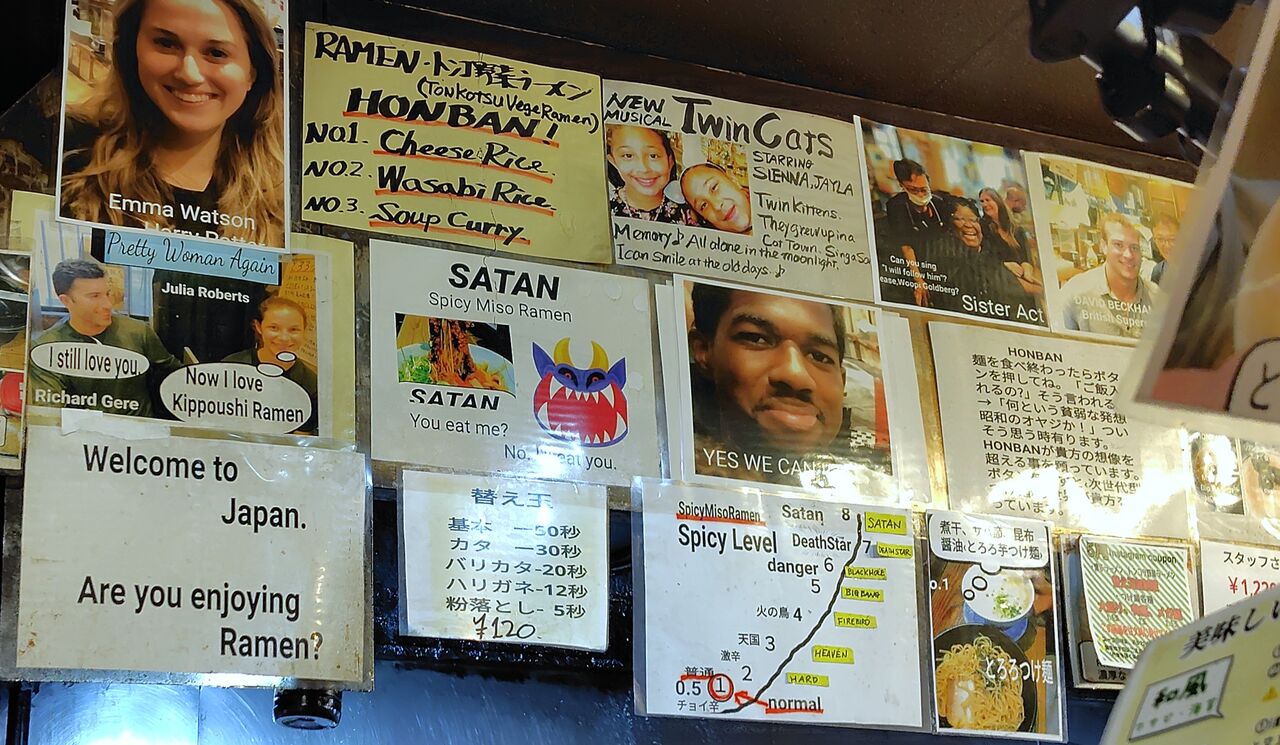 Emma Watson
RAMEN・トン汁野菜ラーメン
(Tonkotsu Vege Ramen)
HONBAN!
No1. Cheese Rice
NO.2. Wasabi Rice
NO.3. Soup Curry
NEW
MUSICAL
Twin Cats
STARRING
SIENNA, JAYLA
Twin Kittens.
They grew up in a
Cat Town. Sing a So
Memory♪ All alone in the moonlight.
I can Smile at the old days♪
Can you sing
"I will follow him"?
ease, Woopi Goldberg?
Sister Act
DAVID BECKHA
British Super
Pretty Woman Again
Julia Roberts
I still love you,
Richard Gere
Now I love
Kippoushi Ramen
SATAN
Spicy Miso Ramen
SATAN
You eat me?
No, I eat you.
YES WE CAN
HONBAN
麺を食べ終わったらボタ
ンを押してね。「ご飯入
れるの?」そう言われる
→「何という貧弱な発想
昭和のオヤジか!」つい
そう思う時有ります。
HONBANが貴方の想像を
超える事を願っています。
Welcome to
Japan.
Are you enjoying
Ramen?
替え玉
基本 ー50秒
カタ ー30秒
バリカタ-20秒
ハリガネ-12秒
粉落とし- 5秒
¥120.
SpicyMisoRamen
Spicy Level
Satan 8
SATAN
DeathStar 7
DEATHSTAR
danger 6
BLACKHOLE
5
BIGBANG
火の鳥 4
FIREBIRD
天国 3
HEAVEN
激辛
2
HARD
普通
0.5 1
normal
チョイ辛
煮干、昆布
醤油とろろ芋つけ麺
o.1
とろろつけ麺
coupon
スタッフさ
美味しい
和風